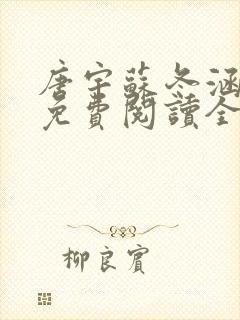 唐宇蘇冬涵
免費閱讀全
柳良賓